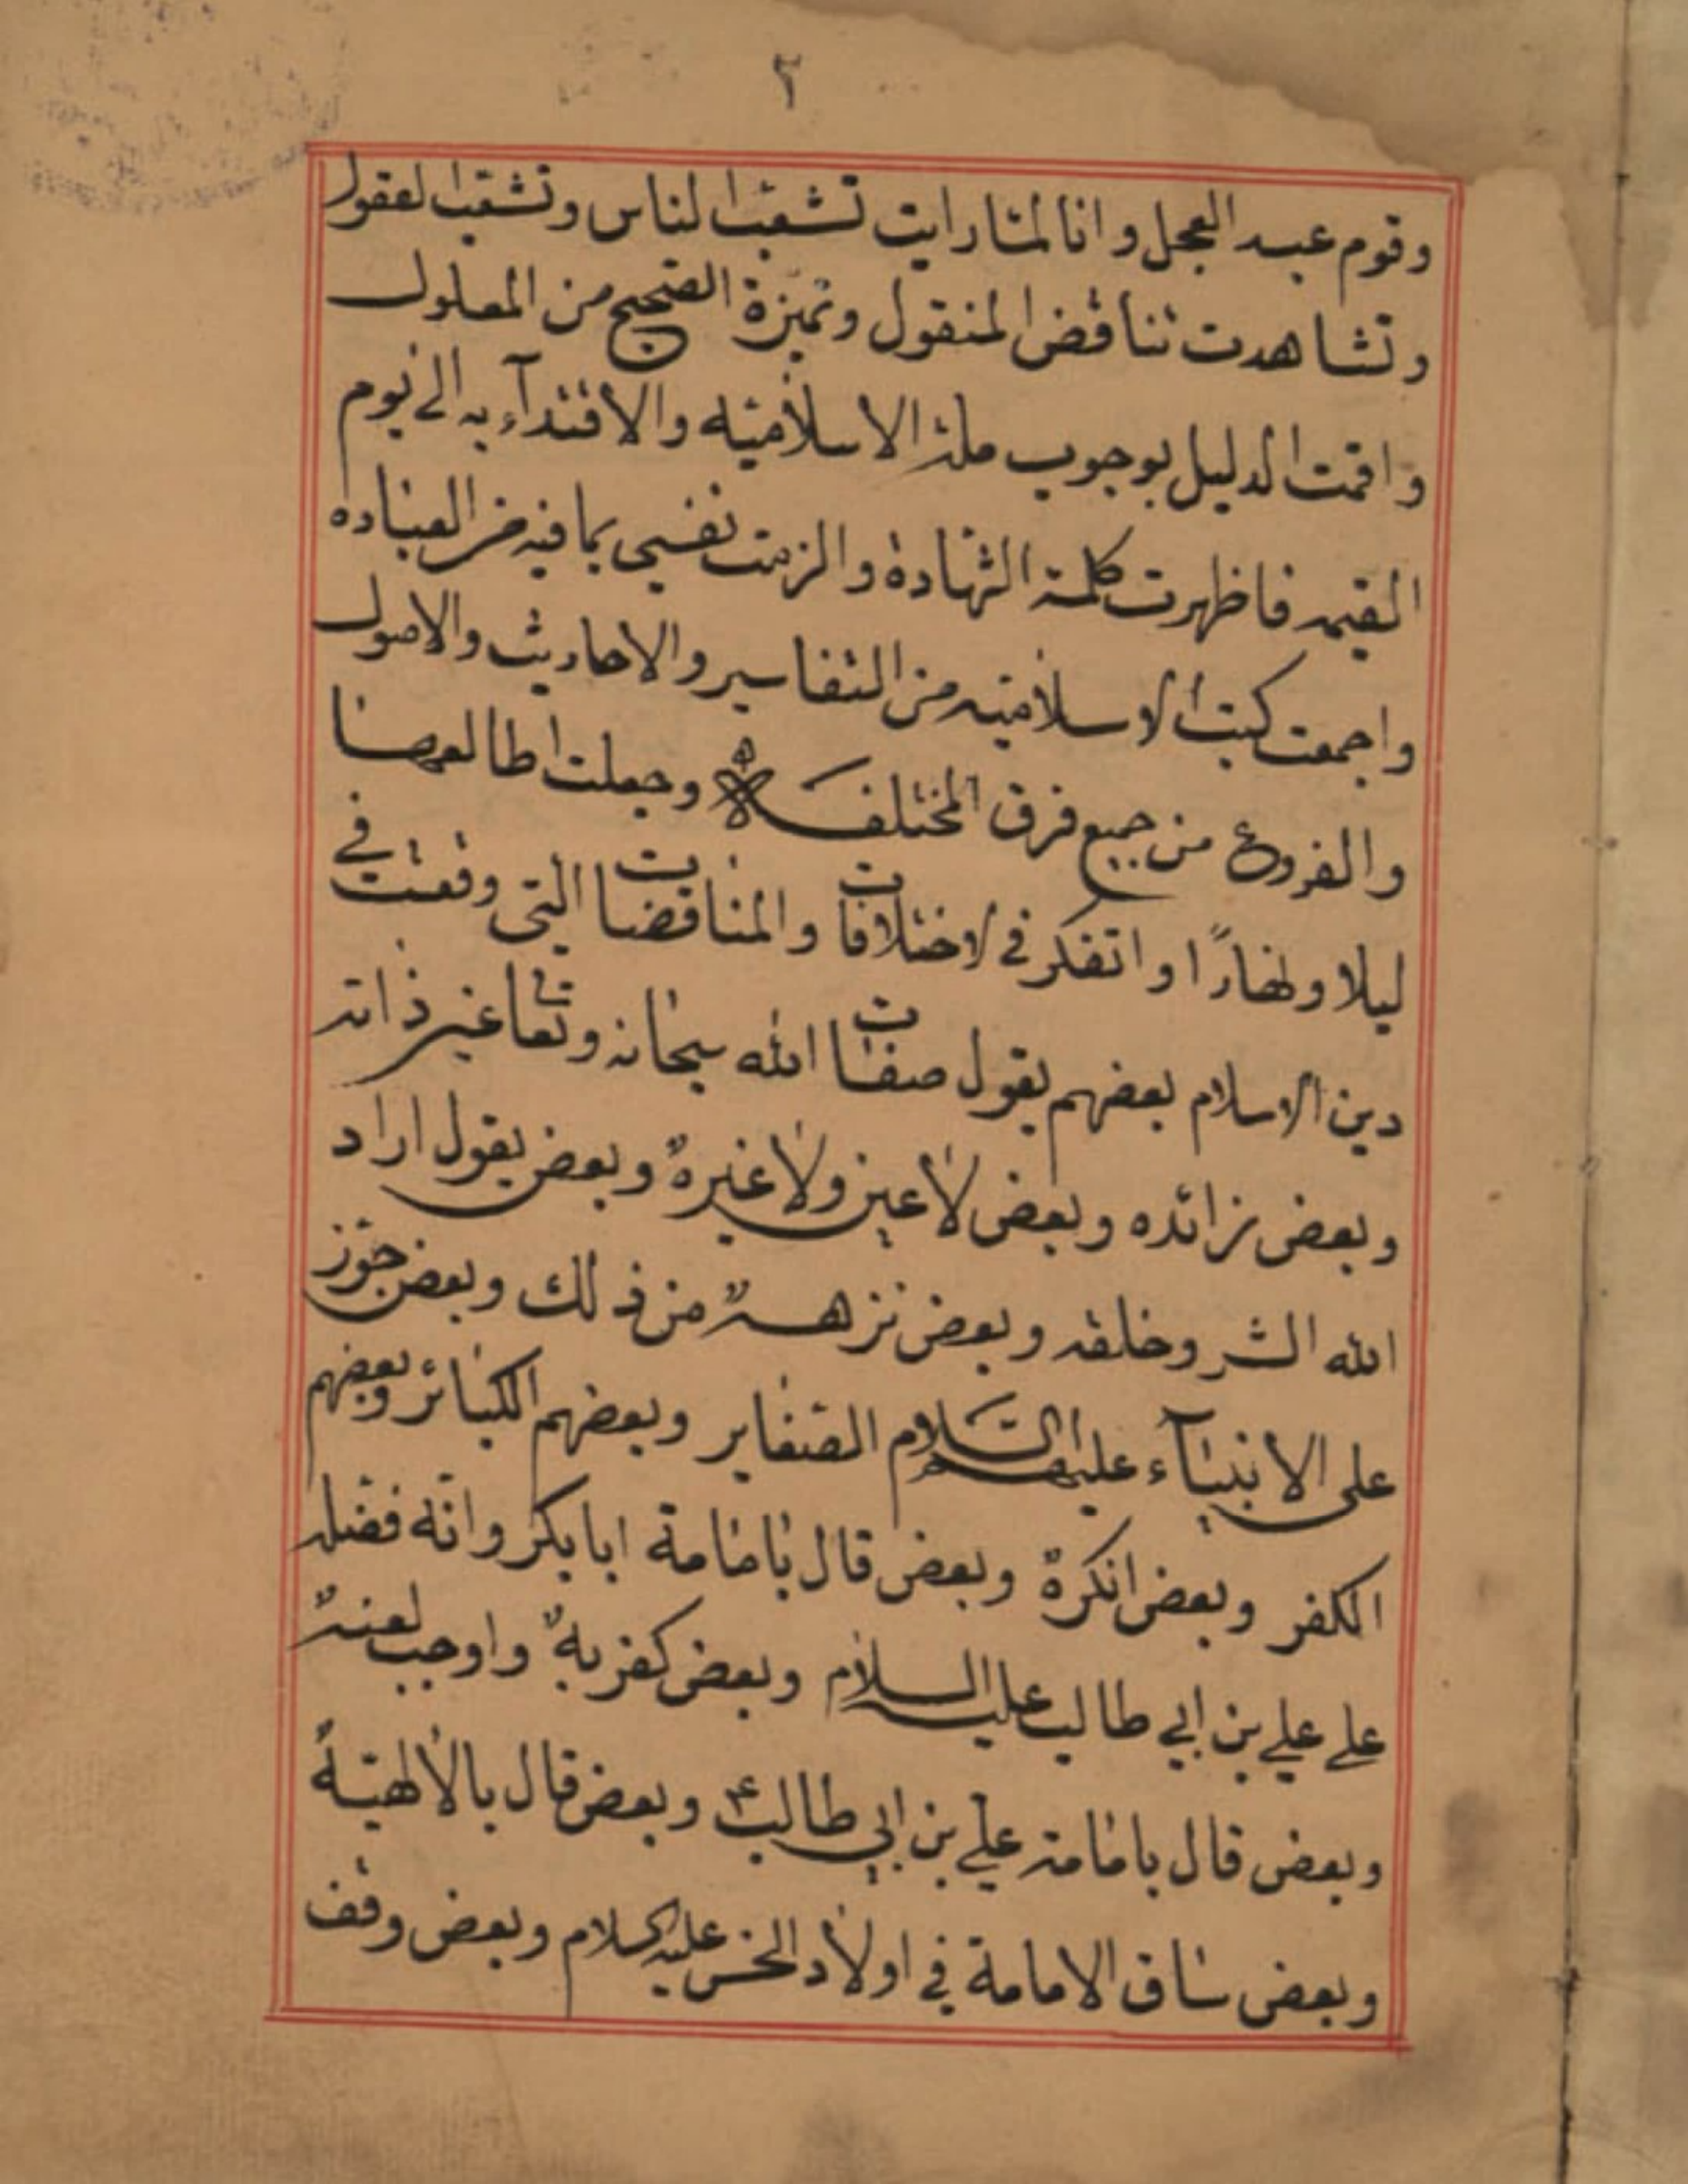 ٢
وقوم عبد العجل وانا لمّا رايت تشعّب الناس وتشعّب العقول
وتشاهدت تناقض المنقول وتميزة الصحيح من المعلول
واقمت الدليل بوجوب ملة الاسلاميّه والاقتدآء به الى يوم
القيمه فاظهرت كلمة الشهادة والزمت نفسي بما فيه من العباده
واجمعت كتب الاسلاميّه من التفاسير والاحاديث والاصول
والفروع من جميع فرق المختلفه وجعلت اطالعها
ليلا ونهارًا واتفكر في الاختلافات والمناقضات التى وقعت في
دين الاسلام بعضهم يقول صفات الله سبحانه وتعالى غير ذاته
وبعض زائده وبعض لا عين ولا غيره وبعض يقول اراد
الله الشر وخلقه وبعض نزهه من ذلك وبعض جوّز
على الانبيآء عليهم السّلام الصّغاير وبعضهم الكبائر وبعضهم
الكفر وبعض انكره وبعض قال بامامة ابابكر وانّه فضله
علي علي بن ابي طالب عليه السلام وبعض كفر به واوجب لعنه
وبعض قال بامامة علي بن ابي طالب ع وبعض قال بالالهيّة
وبعض ساق الامامة في اولاد الحسن عليه السلام وبعض وقف